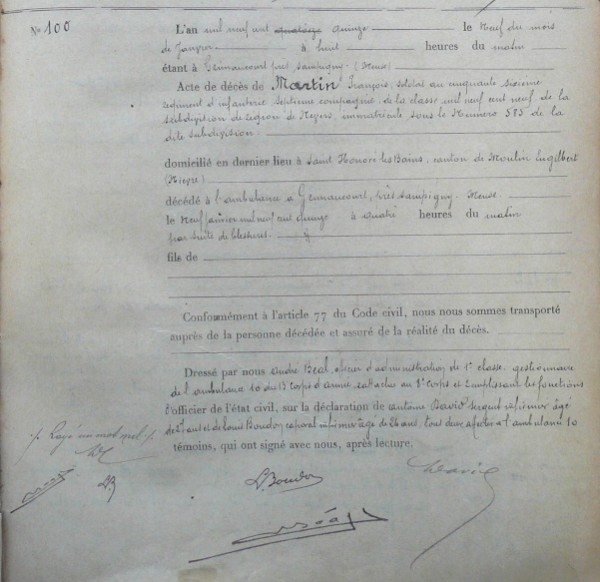 No 100
L'an mil neuf cent quatorze quinze le Neuf du mois
de Janvier à huit heures du matin
étant à Gémnaucourt près Sampigny (Meuse)
Acte de décès de Martin François, soldat au cinquante sixième
régiment d'infanterie septième compagnie, de la classe mil neuf cent neuf, de la
subdivision de région de Nevers, immatriculé sous le Numéro 585 de la
dite subdivision.
domicilié en dernier lieu à Saint Honoré les Bains, canton de Moulin Engilbert
(Nièvre)
décédé à l'ambulance à près Sampigny, Meuse
le Neuf janvier mil neuf cent quinze à quatre heures du matin
par suite de blessures.
fils de
Conformément à l'article 77 du Code civil, nous nous sommes transporté
auprès de la personne décédée et assuré de la réalité du décès.
Dressé par nous André officier d'administration de 1e classe, gestionnaire
de l'ambulance 10 du Corps d'armée, rattachée au Corps et remplissant les fonctions
d'officier de l'état civil, sur la déclaration de Antoine David sergent infirmier âgé
de ans et de Louis Boudon caporal infirmier âgé de 26 ans, tous deux à l'ambulance 10
témoins, qui ont signé avec nous, après lecture.
/. Rayé un mot nul /.
L. Boudon
David